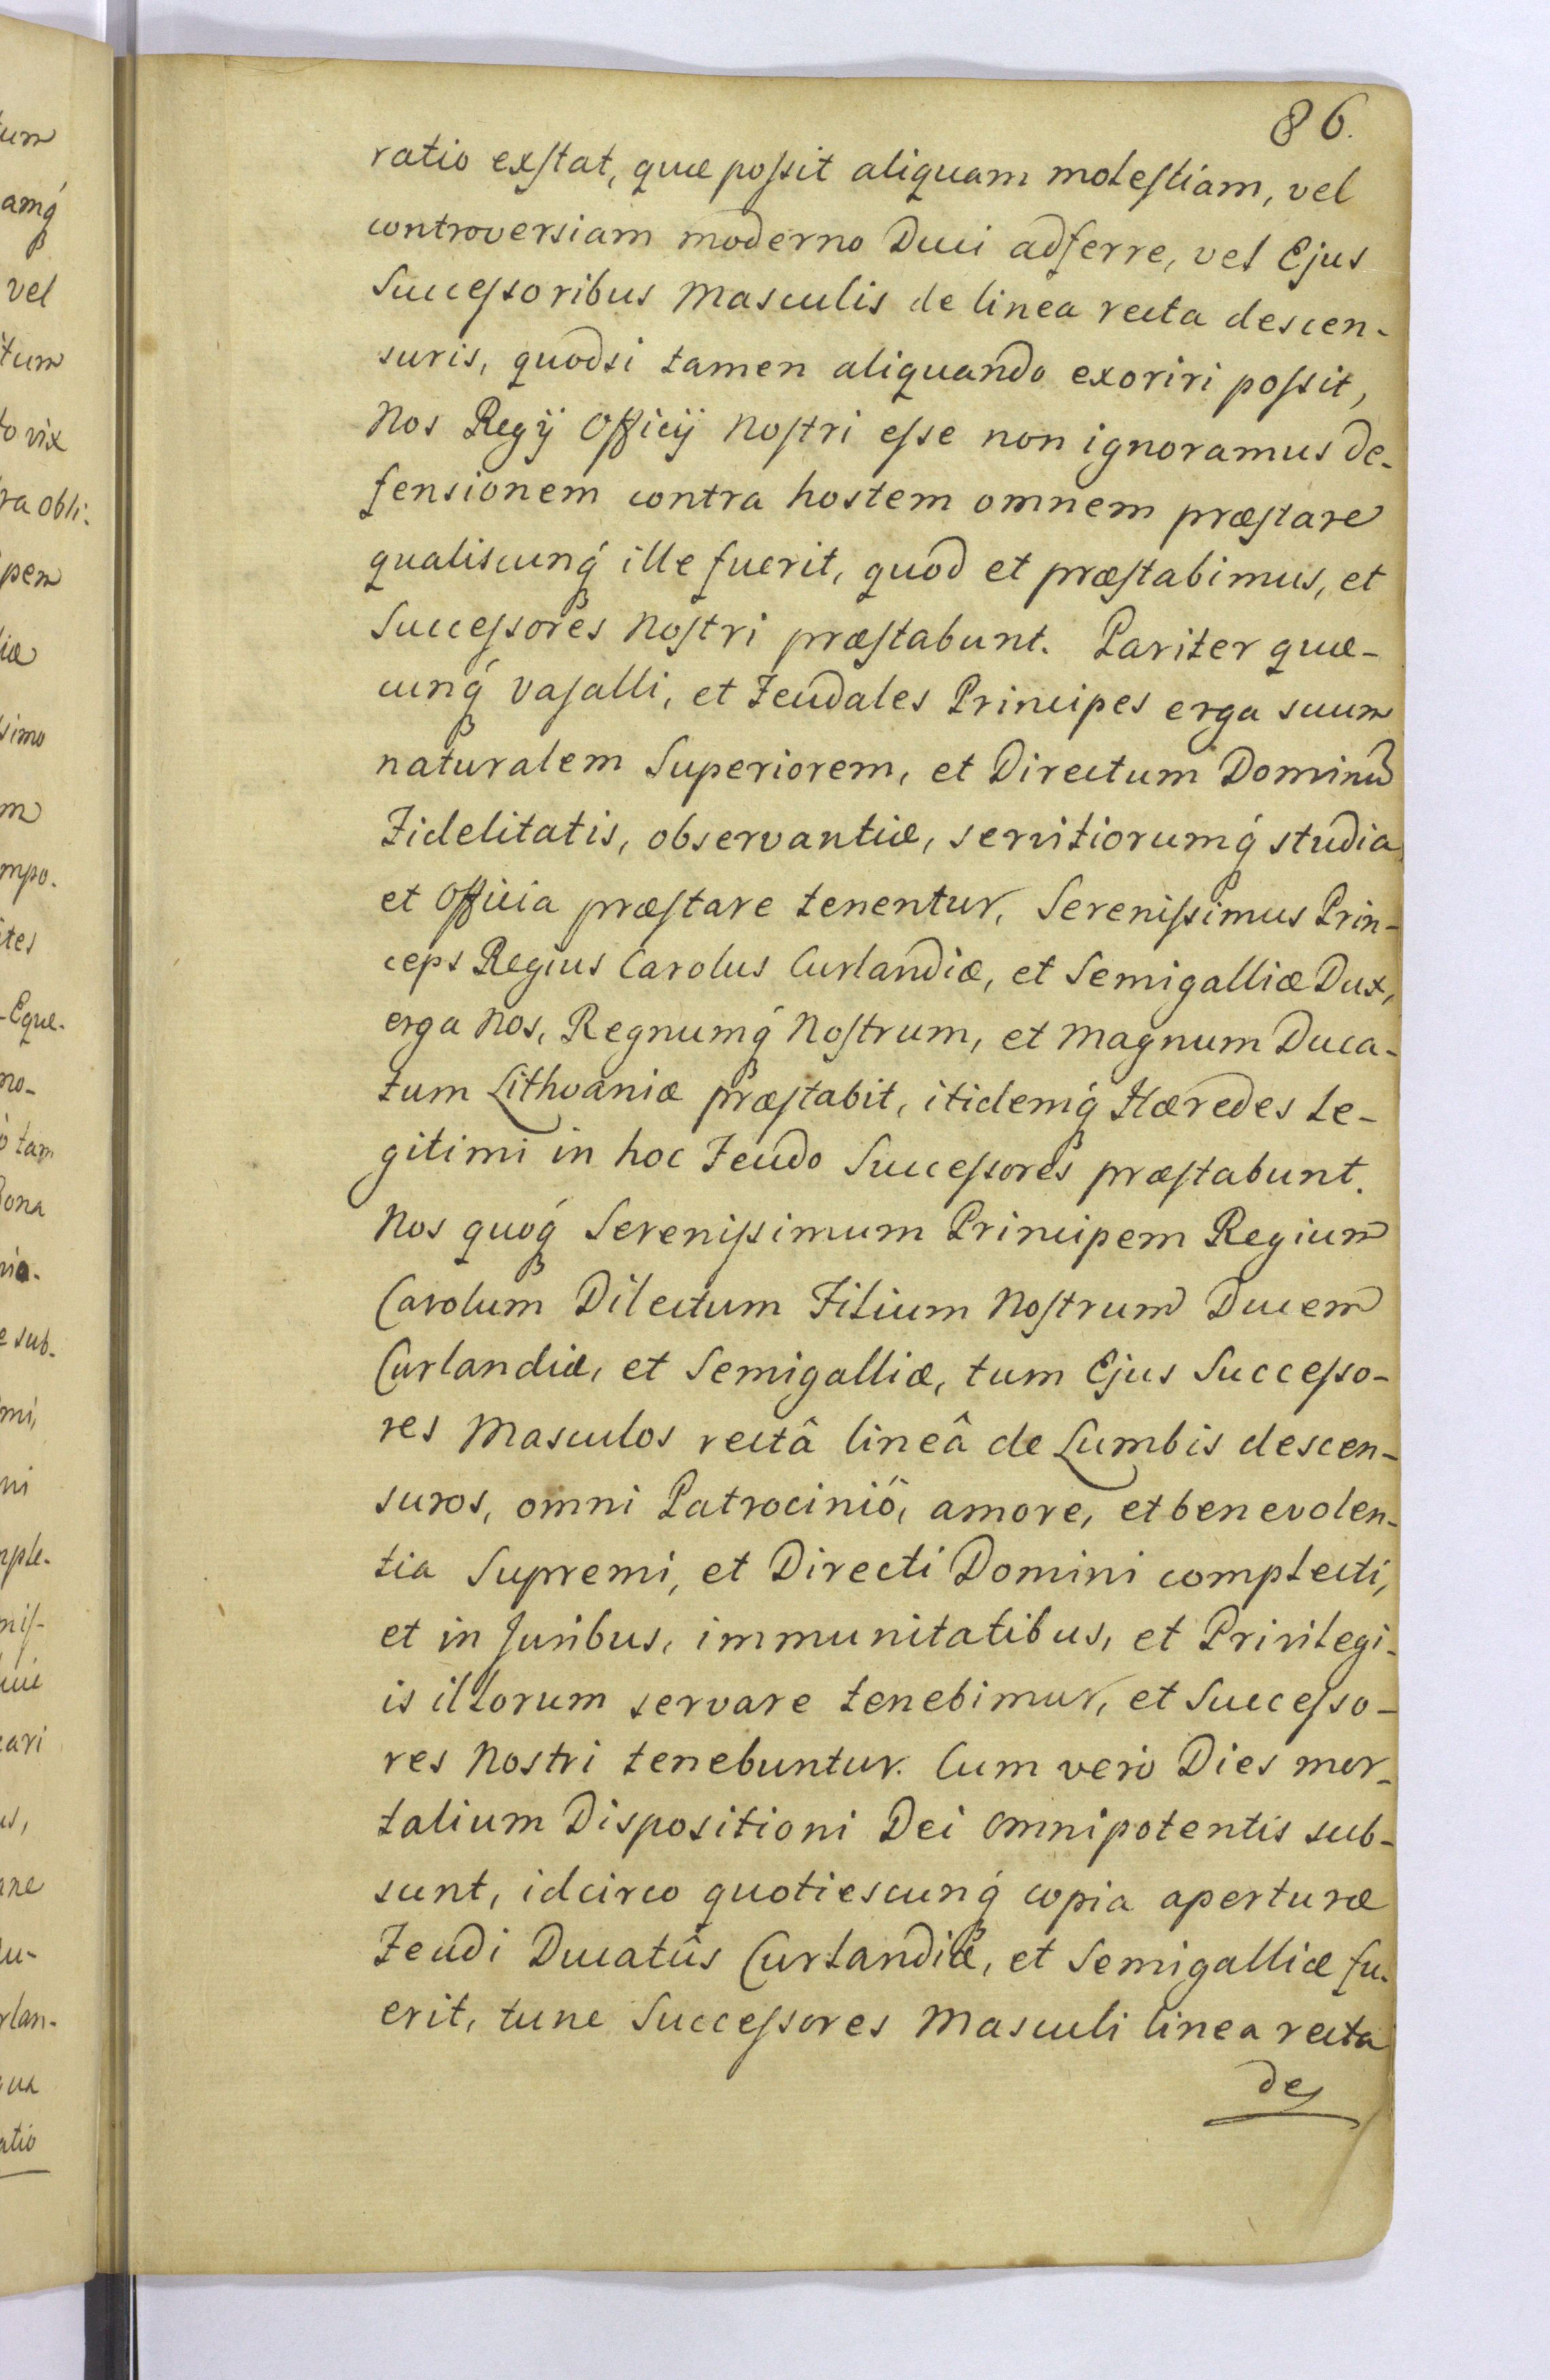 86.
ratio exstat, quæ possit aliquam molestiam, vel
controversiam moderno Duci adferre, vel Ejus
Successoribus Masculis de linea recta descen-
suris, quodsi tamen aliquando exoriri possit,
Nos Regÿ Officÿ Nostri esse non ignoramus de-
fensionem contra hostem omnem præstare
qualiscunq́ ille fuerit, quod et præstabimus, et
Successores Nostri præstabunt. Pariter quæ-
cunq́ Vasalli, et Feudales Principes erga suum
naturalem Superiorem, et Directum Dominū
Fidelitatis, observantiæ, servitiorumq́ studia
et Officia præstare tenentur, Serenissimus Prin-
ceps Regius Carolus Curlandiæ, et Semigalliæ Dux,
erga Nos, Regnumq́ Nostrum, et Magnum Duca-
tum Lithvaniæ præstabit, itidemq́ Hæredes Le-
gitimi in hoc Feudo Successores præstabunt.
Nos quoq́ Serenissimum Principem Regium
Carolum Dilectum Filium Nostrum Ducem
Curlandiæ, et Semigalliæ, tum Ejus Successo-
res Masculos rectâ lineâ de Lumbis descen-
suros, omni Patrociniô, amore, et benevolen-
tia Supremi, et Directi Domini complecti,
et in Juribus, immunitatibus, et Privilegi-
is illorum servare tenebimur, et Successo-
res Nostri tenebuntur. Cum verò Dies mor-
talium Dispositioni Dei Omnipotentis sub-
sunt, idcirco quotiescunq́ copia aperturæ
Feudi Ducatûs Curlandiæ, et Semigalliæ fu-
erit, tunc Successores Masculi linea recta
de